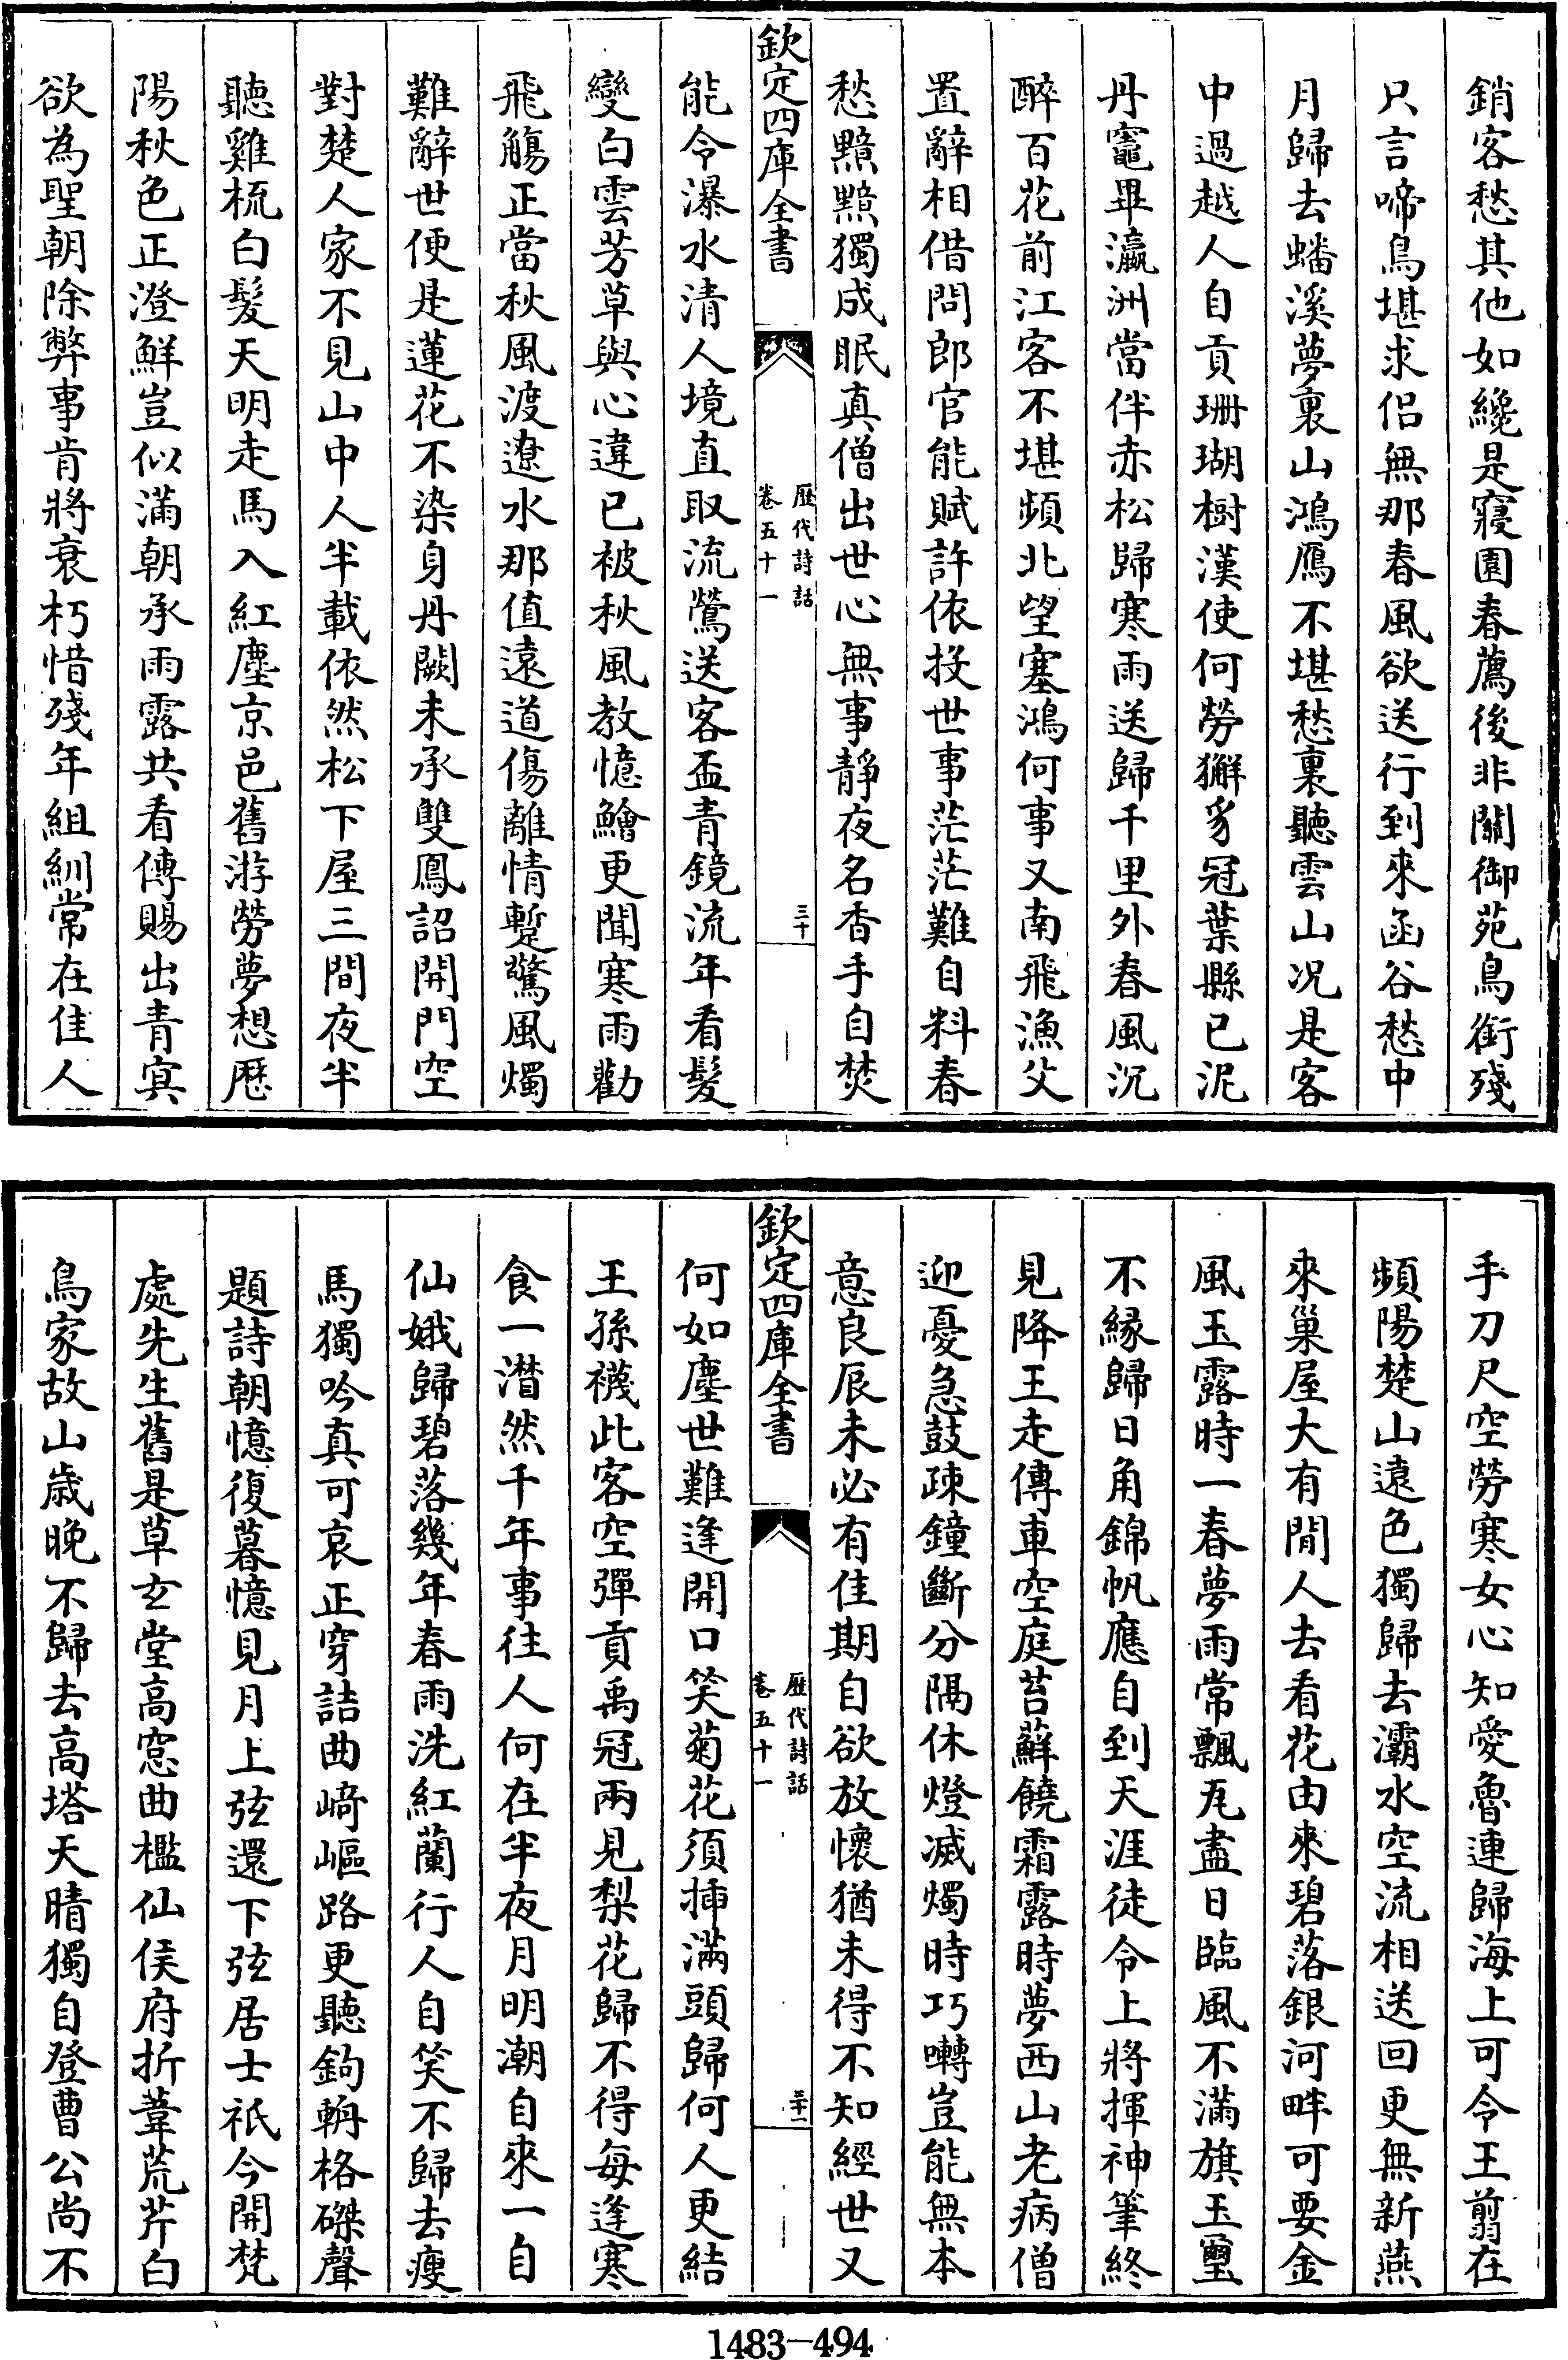 銷客愁其他如纔是寢園春薦後非關御苑鳥銜殘
只言啼鳥堪求侶無那春風欲送行到來函谷愁中
月歸去蟠溪夢裏山鴻鴈不堪愁裏聽雲山况是客
中過越人自貢珊瑚樹漢使何勞獬豸冠葉縣已泥
丹竈畢瀛洲當伴赤松歸寒雨送歸千里外春風沉
醉百花前江客不堪頻北望塞鴻何事又南飛漁父
置辭相借問郎官能賦許依投世事茫茫難自料春
愁黯黯獨成眠真僧出世心無事靜夜名香手自焚
欽定四庫全書
歷代詩話
卷五十一
三十
能令瀑水清人境直取流鶯送客盃青鏡流年看髮
變白雲芳草與心違已被秋風教憶鱠更聞寒雨勸
飛觴正當秋風渡遼水那值遠道傷離情蹔驚風燭
難辭世便是蓮花不染身丹闕未承雙鳳詔開門空
對楚人家不見山中人半載依然松下屋三間夜半
聽雞梳白髮天明走馬入紅塵京邑舊游勞夢想歷
陽秋色正澄鮮豈似滿朝承雨露共看傳賜出青冥
欲為聖朝除弊事肯將衰朽惜殘年組紃常在佳人
手刀尺空勞寒女心知愛魯連歸海上可令王翦在
頻陽楚山遠色獨歸去灞水空流相送回更無新燕
來巢屋大有閒人去看花由來碧落銀河畔可要金
風玉露時一春夢雨常飄瓦盡日臨風不滿旗玉璽
不緣歸日角錦帆應自到天涯徒令上將揮神筆終
見降王走傳車空庭苔蘚饒霜露時夢西山老病僧
迎憂急鼓疎鐘斷分隅休燈滅燭時巧囀豈能無本
意良辰未必有佳期自欲放懷猶未得不知經世又
欽定四庫全書
歷代詩話
卷五十一
三十一
何如塵世難逢開口笑菊花須揷滿頭歸何人更結
王孫襪此客空彈貢禹冠兩見梨花歸不得每逢寒
食一潸然千年事往人何在半夜月明潮自來一自
仙娥歸碧落幾年春雨洗紅蘭行人自笑不歸去瘦
馬獨吟真可哀正穿詰曲﨑嶇路更聽鉤輈格磔聲
題詩朝憶復暮憶見月上弦還下弦居士祇今開梵
處先生舊是草玄堂高窓曲檻仙侯府折葦荒芹白
鳥家故山歲晚不歸去高塔天晴獨自登曹公尚不
1483-494